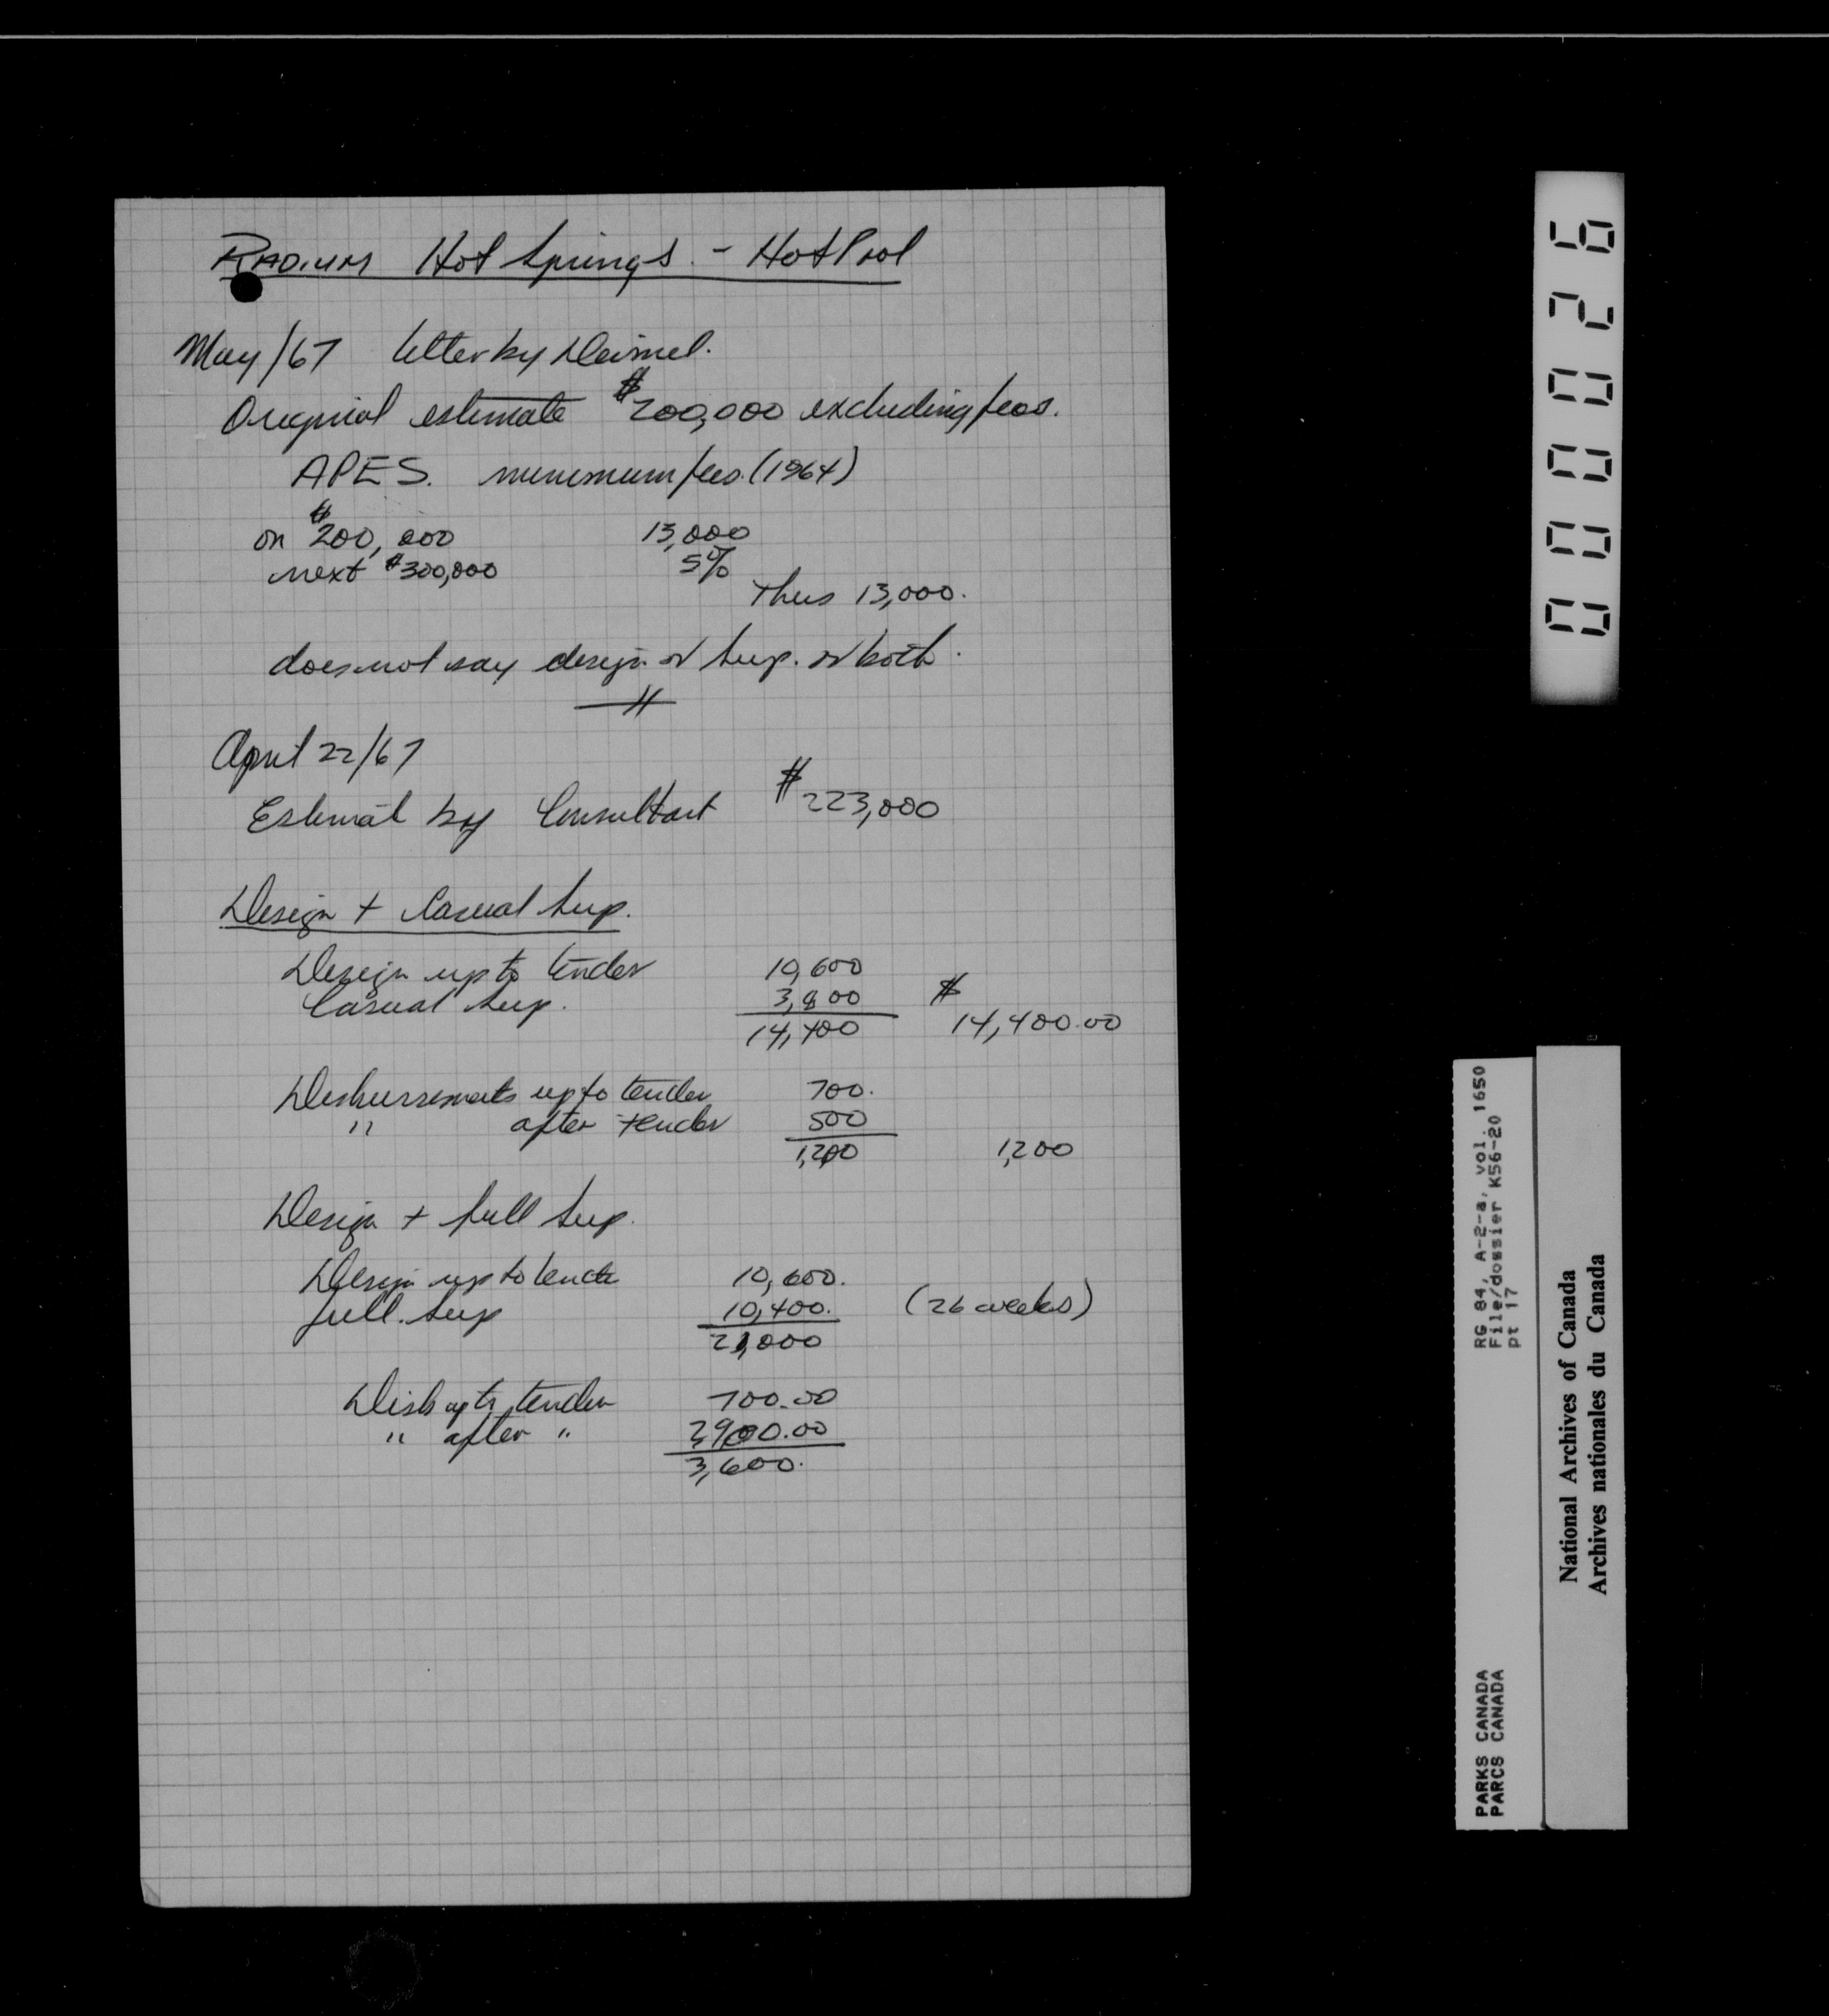 RADIUM Hot Springs. - Hot Pool
May/67 letter by Deimel.
Original estimate $200,000 excluding fees.
APES. minimum fees. (1964)
on $200,000 13,000
next $300,000 5%
Thus 13,000.
does not say design or Sup. or both.
April 22/67
Estimat by Consultant $223,000
Design + Casual Sup.
Design up to tender 10,600
Casual Sup. 3,800 $
14,400 14,400.00
Disbursements up to tender 700.
" after tender 500
1,200 1,200
Design + full Sup.
Design up to tende 10,600.
full. Sup 10,400. (26 weeks)
21,000
Disb up to tender 700.00
" after " 2,900.00
3,600.
000026
RG 84, A-2-a, vol. 1650
File/dossier K56-20
pt 17
PARKS CANADA
PARCS CANADA
National Archives of Canada
Archives nationales du Canada